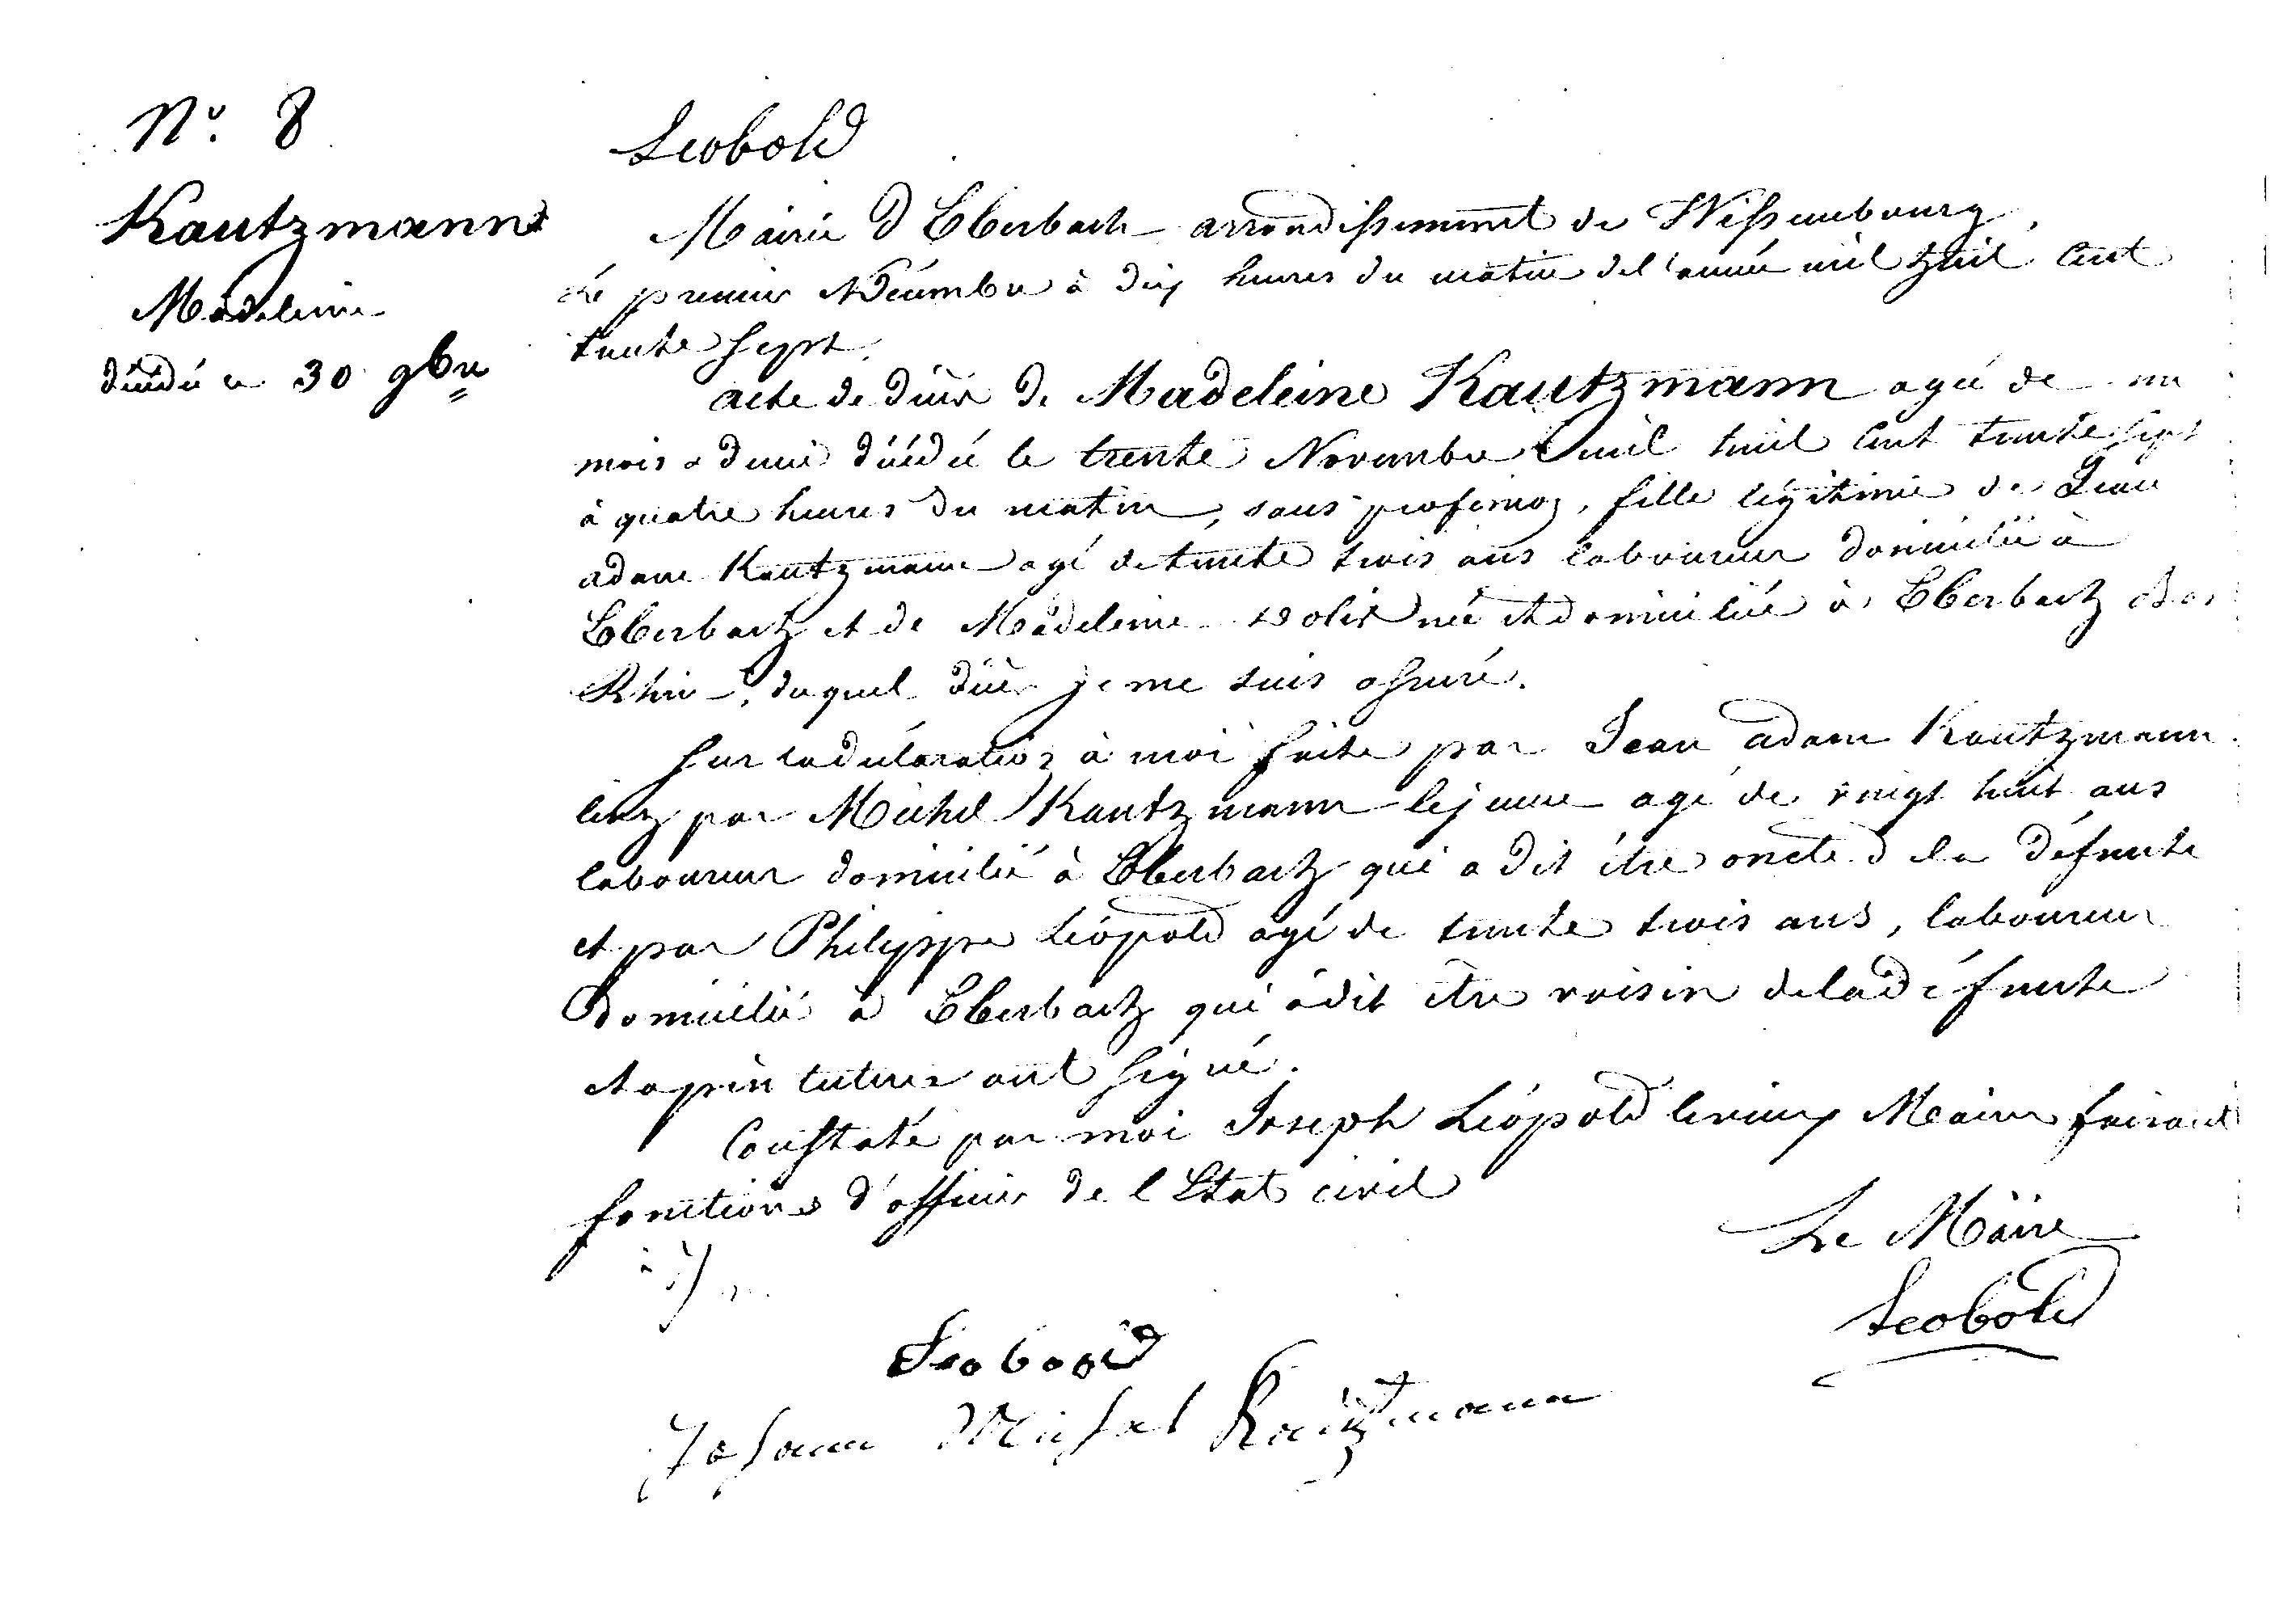 N.o 8
Kautzmann
Madeleine
décédée le 30 9bre
Leobold
Mairie d'Eberbach arrondissement de Wissembourg,
Le premier Décembre à dix heures du matin de l'année mil huit Cent
trente Sept.
acte de décès de Madeleine Kautzmann agée de un
mois & demi décédée le trente Novembre mil huit Cent trente Sept
à quatre heures du matin, sans profession, fille légitime de Jean
adam Kautzmann agé de trente trois ans laboureur domicilié à
Eberbach et de Madeleine née et domiciliée à Eberbach Bas
Rhin, duquel décès je me suis assuré.
Sur la déclaration à moi faite par Jean adam Kautzmann
par Michel Kautzmann le jeune agé de vingt huit ans
laboureur domicilié à Eberbach qui a dit être oncle de la défunte
et par Philippe Léopold agé de trente trois ans, laboureur
domicilié à Eberbach qui a dit être voisin de la défunte
et après lecture ont Signé.
Constaté par moi Joseph Léopold Maire faisant
fonctions d'officier de l'Etat civil
Le Maire
Leobold
Leobold
Johann Michel Kautzmann